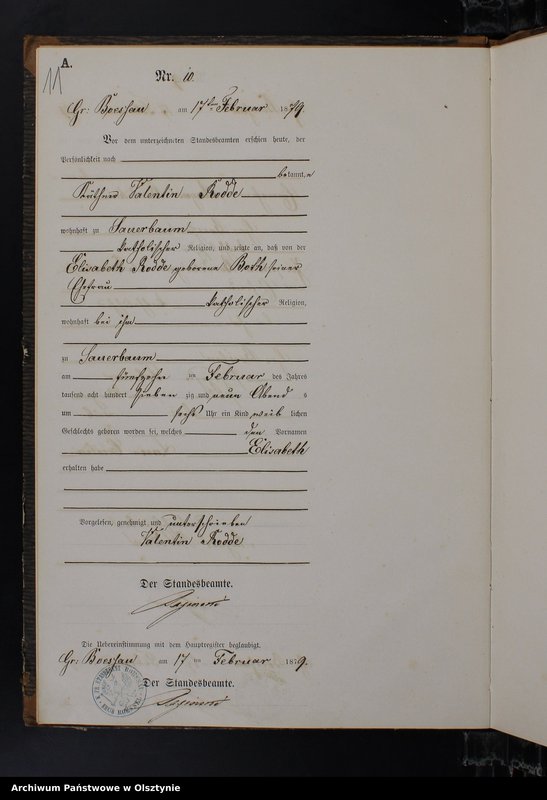 A.
11
Nr. 10.
Gr: Boessau am 17ten Februar 1879
Vor dem unterzeichneten Standesbeamten erschien heute, der
Persönlichkeit nach
bekannt,
Valentin Rodde
wohnhaft zu Sauerbaum
katholischer Religion, und zeigte an, daß von der
Elisabeth Rodde geborene Both seiner
Ehefrau
katholischer Religion,
wohnhaft bei ihm
zu Sauerbaum
am fünfzehn ten Februar des Jahres
tausend acht hundert sieben zig und neun Abends
um sechs Uhr ein Kind weib lichen
Geschlechts geboren worden sei, welches den Vornamen
Elisabeth
erhalten habe
Vorgelesen, genehmigt und unterschrieben
Valentin Rodde
Der Standesbeamte.
Die Uebereinstimmung mit dem Hauptregister beglaubigt.
Gr: Boessau am 17 ten Februar 1879.
Der Standesbeamte.
Archiwum Państwowe w Olsztynie